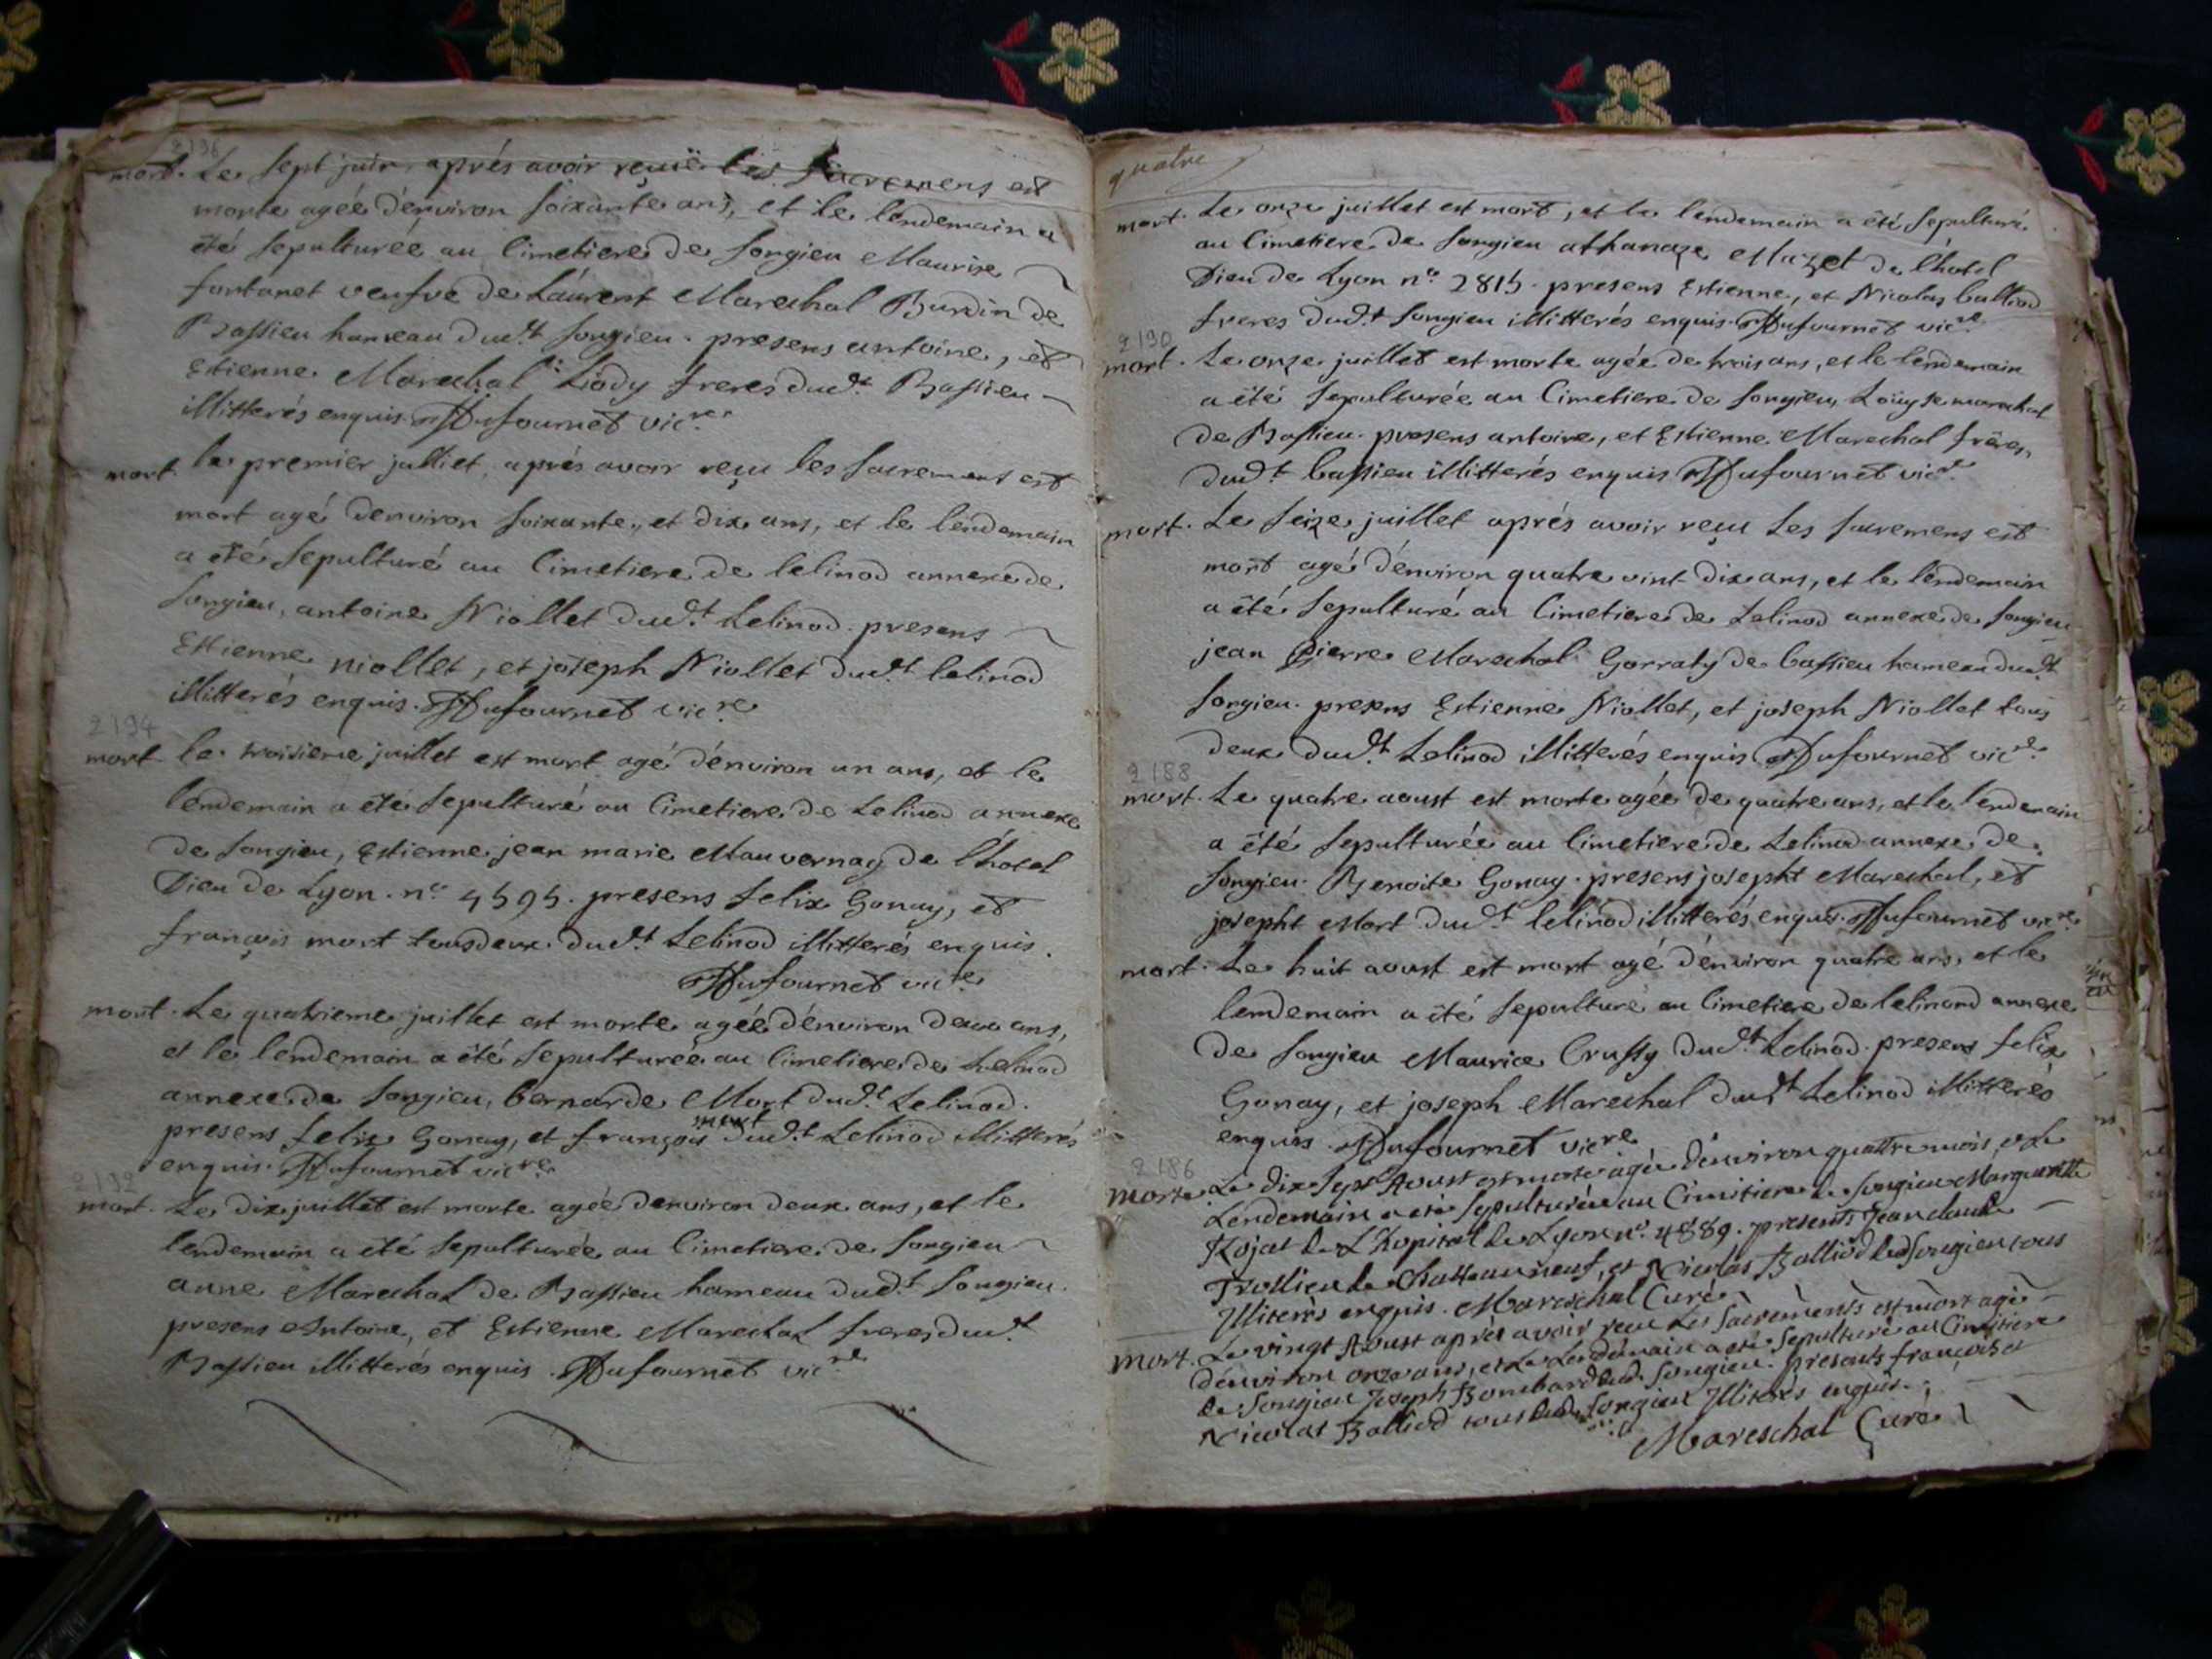 2196
mort. Le sept juin après avoir reçuë les sacremens est
morte agée d'énviron soixante ans, et le lendemain a
été sepulturée au Cimetiere de songieu Maurise
fontanet veufve de Laurent Marechal Burdin de
Bassieu hameau dud.t songieu. presens antoine, et
Estienne Marechal Lody freres dud.t Bassieu
illitterés enquis. Dufournet vic.re
mort. le premier julliet, après avoir reçu les sacremens est
mort agé denviron soixante, et dix ans, et le lendemain
a été sepulturé au Cimetiere de lelinod annexe de
songieu, antoine Niollet dud.t Lelinod. presens
Estienne niollet, et joseph Niollet dud.t lelinod
illitterés enquis. Dufournet vic.re
2194
mort le troisieme juillet est mort agé d'énviron un ans, et le
lendemain a été sepulturé au Cimetiere de Lelinod annexe
de songieu, Estienne jean marie Mauvernay de l'hotel
Dieu de Lyon. n.o 4595. presens felix Gonay, et
françois mort tous deux dud.t Lelinod illitterés enquis.
Dufournet vic.re
mort. Le quatrieme juillet est morte agée d'énviron deux ans,
et le lendemain a été sepulturée au Cimetiere de Lelinod
annexe de songieu, bernarde Mort dud.t Lelinod.
presens felix Gonay, et françois mort dud.t Lelinod illitterés
enquis. Dufournet vic.re
2192
mort. Le dix juillet est morte agée denviron deux ans, et le
lendemain a été sepulturée au Cimetiere de songieu
anne Marechal de Bassieu hameau dud.t songieu.
presens Antoine, et Estienne Marechal freres dud.t
Bassieu illitterés enquis. Dufournet vic.re
quatre
mort. Le onze juillet est mort, et le lendemain a été sepulturé
au Cimetiere de songieu athanaze Mazet de l'hotel
Dieu de Lyon n.o 2815. presens Estienne, et Nicolas balliod
freres dud.t songieu illitterés enquis. Dufournet vic.re
2190
mort. Le onze juillet est morte agée de trois ans, et le lendemain
a été sepulturée au Cimetiere de songieu, Loüyse marechal
de Bassieu. presens antoine, et Estienne Marechal fréres
dud.t bassieu illitterés enquis Dufournet vic.re
mort. Le seize juillet après avoir reçu les sacremens est
mort agé d'énviron quatre vint dix ans, et le lendemain
a été sepulturé au Cimetiere de Lelinod annexe de songieu
jean pierre Marechal Gorraty de bassieu hameau dud.t
songieu. presens Estienne Niollet, et joseph Niollet tous
deux dud.t Lelinod illitterés enquis Dufournet vic.re
2188
mort. Le quatre aoust est morte agée de quatre ans, et le lendemain
a été sepulturée au Cimetiere de Lelinod annexe de
songieu. Benoite Gonay. presens josepht Marechal, et
josepht Mort dud.t lelinod illitterés enquis. Dufournet vic.re
mort. Le huit aoust est mort agé d'énviron quatre ans, et le
lendemain a été sepulturé au Cimetiere de lelinod annexe
de songieu Maurice Crussy dud.t Lelinod. presens felix
Gonay, et joseph Marechal dud.t Lelinod illitterés
enquis. Dufournet vic.re
2186
morte Le dix sept Aoust est morte agée d'énviron quattre mois, et le
Lendemain a été sepulturée au Cimitiere de songieu Marguerite
Rojat de L'hopital de Lyon n.o 4889. presents Jean claude
Trollieu de Chatteauneuf, et Nicolas Balliod dud songieu tous
Illiterés enquis. Mareschal Curé
mort. Le vingt Aoust après avoir reçu Les sacrements est mort agé
d'énviron onze ans, et Le Lendemain a été sepulturé au Cimitiere
de songieu Joseph Bombard dud. songieu. presents françois et
Nicolas Balliod tous dud. songieu Illiterés enquis.
Mareschal Curé